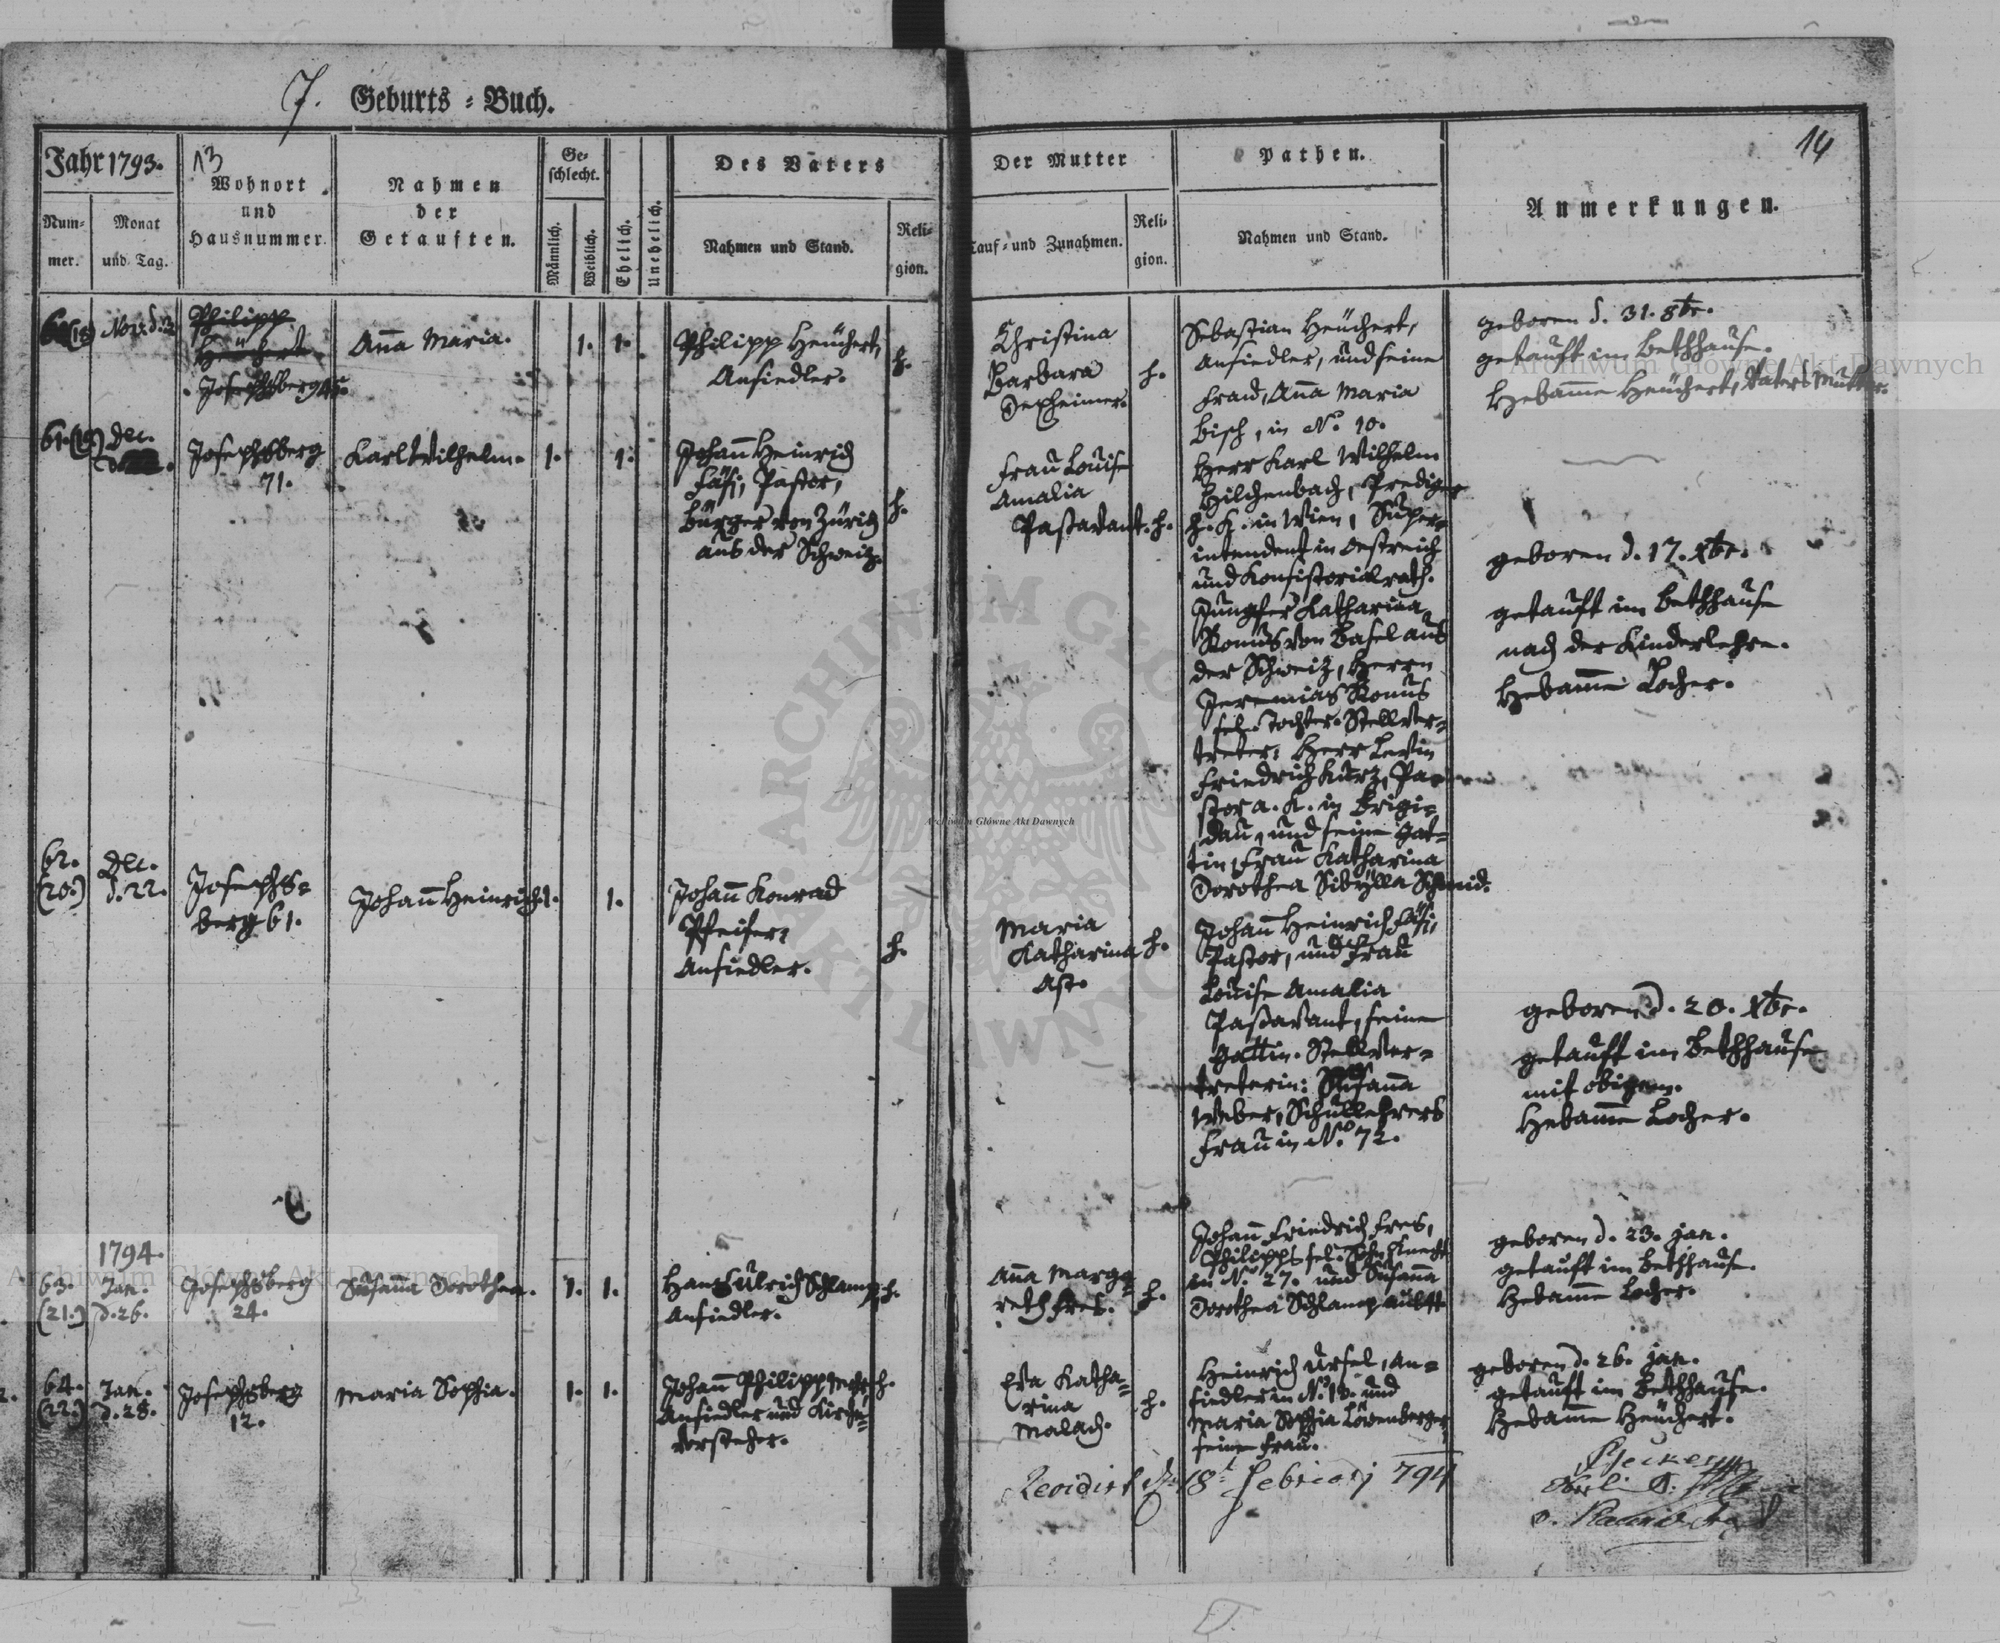 7. Geburts = Buch.
14
Jahr 1793.
13
Wohnort
und
Hausnummer.
Nahmen
der
Getauften.
Ge-
schlecht.
Männlich.
Weiblich.
Ehelich.
Unehelich.
Num-
mer.
Monat
und Tag.
Des Vaters
Nahmen und Stand.
Reli-
gion.
Der Mutter
Tauf- und Zunahmen.
Reli-
gion.
Pathen.
Nahmen und Stand.
Anmerkungen.
Philipp
Heüchert
Josephsberg 45.
Anna Maria.
1.
1.
Philipp Heüchert,
Ansiedler.
h.
Christina
Barbara
Dexheimer.
h.
Sebastian Heüchert,
Ansiedler, und seine
Fraü, Anna Maria
Bisch, in No. 10.
geboren d. 31. 8br.
getauft im Bethhause.
Hebamme Heüchert, Vaters Mutter.
61. (19.)
Dec.
Josephsberg
71.
Karl Wilhelm.
1.
1.
Johann Heinrich
Fäsi, Pastor,
Bürger von Zürich
aus der Schweiz.
h.
Frau Louise
Amalia
Passavant.
h.
Herr Karl Wilhelm
Hilchenbach, Prediger
h. K. in Wien, Super-
intendent in Oestreich
und Konsistorialrath.
Jungfer Katharina
von Basel aus
der Schweiz, Herrn
Jeremias
sel. Tochter. Stellver-
treter: Herr Levin
Friedrich Kurz, Pa-
stor a. K. in Brigi-
dau, und seine Gat-
tin, Frau Katharina
Dorothea Sibylla Schmid.
geboren d. 17. Xbr.
getauft im Bethhause
nach der Kinderlehre.
Hebamme Locher.
62.
(20.)
Dec.
d. 22.
Josephs-
berg 61.
Johann Heinrich.
1.
1.
Johann Konrad
Pfeifer,
Ansiedler.
h.
Maria
Katharina
Ast.
h.
Johann Heinrich Fäsi,
Pastor, und Frau
Louise Amalia
Passavant, seine
Gattin. Stellver-
treterin: Susanna
Weber, Schullehrers
Frau in No. 72.
geboren d. 20. Xbr.
getauft im Bethhause
mit obigem.
Hebamme Locher.
1794.
63.
(21.)
Jan.
d. 26.
Josephsberg
24.
Susanna Dorothea.
1.
1.
Hans Ulrich Schlamp,
Ansiedler.
h.
Anna Marga-
reth Fres.
h.
Johann Friedrich Fres,
Philipps sel. Sohn, Knecht
in No. 27. und Susanna
Dorothea Schlamp
geboren d. 23. Jan.
getauft im Bethhause.
Hebamme Locher.
64.
(22.)
Jan.
d. 28.
Josephsberg
12.
Maria Sophia.
1.
1.
Johann Philipp
Ansiedler und Kirchen-
vorsteher.
h.
Eva Katha-
rina
Malach.
h.
Heinrich Ursel, An-
siedler in No. 13. und
Maria Sophia Löwenberger
seine Frau.
geboren d. 26. Jan.
getauft im Bethhause.
Hebamme Heüchert.
Revidirt 18t 794
Archiwum Główne Akt Dawnych
Archiwum Główne Akt Dawnych
Archiwum Główne Akt Dawnych
ARCHIWUM GŁÓWNE AKT DAWNYCH